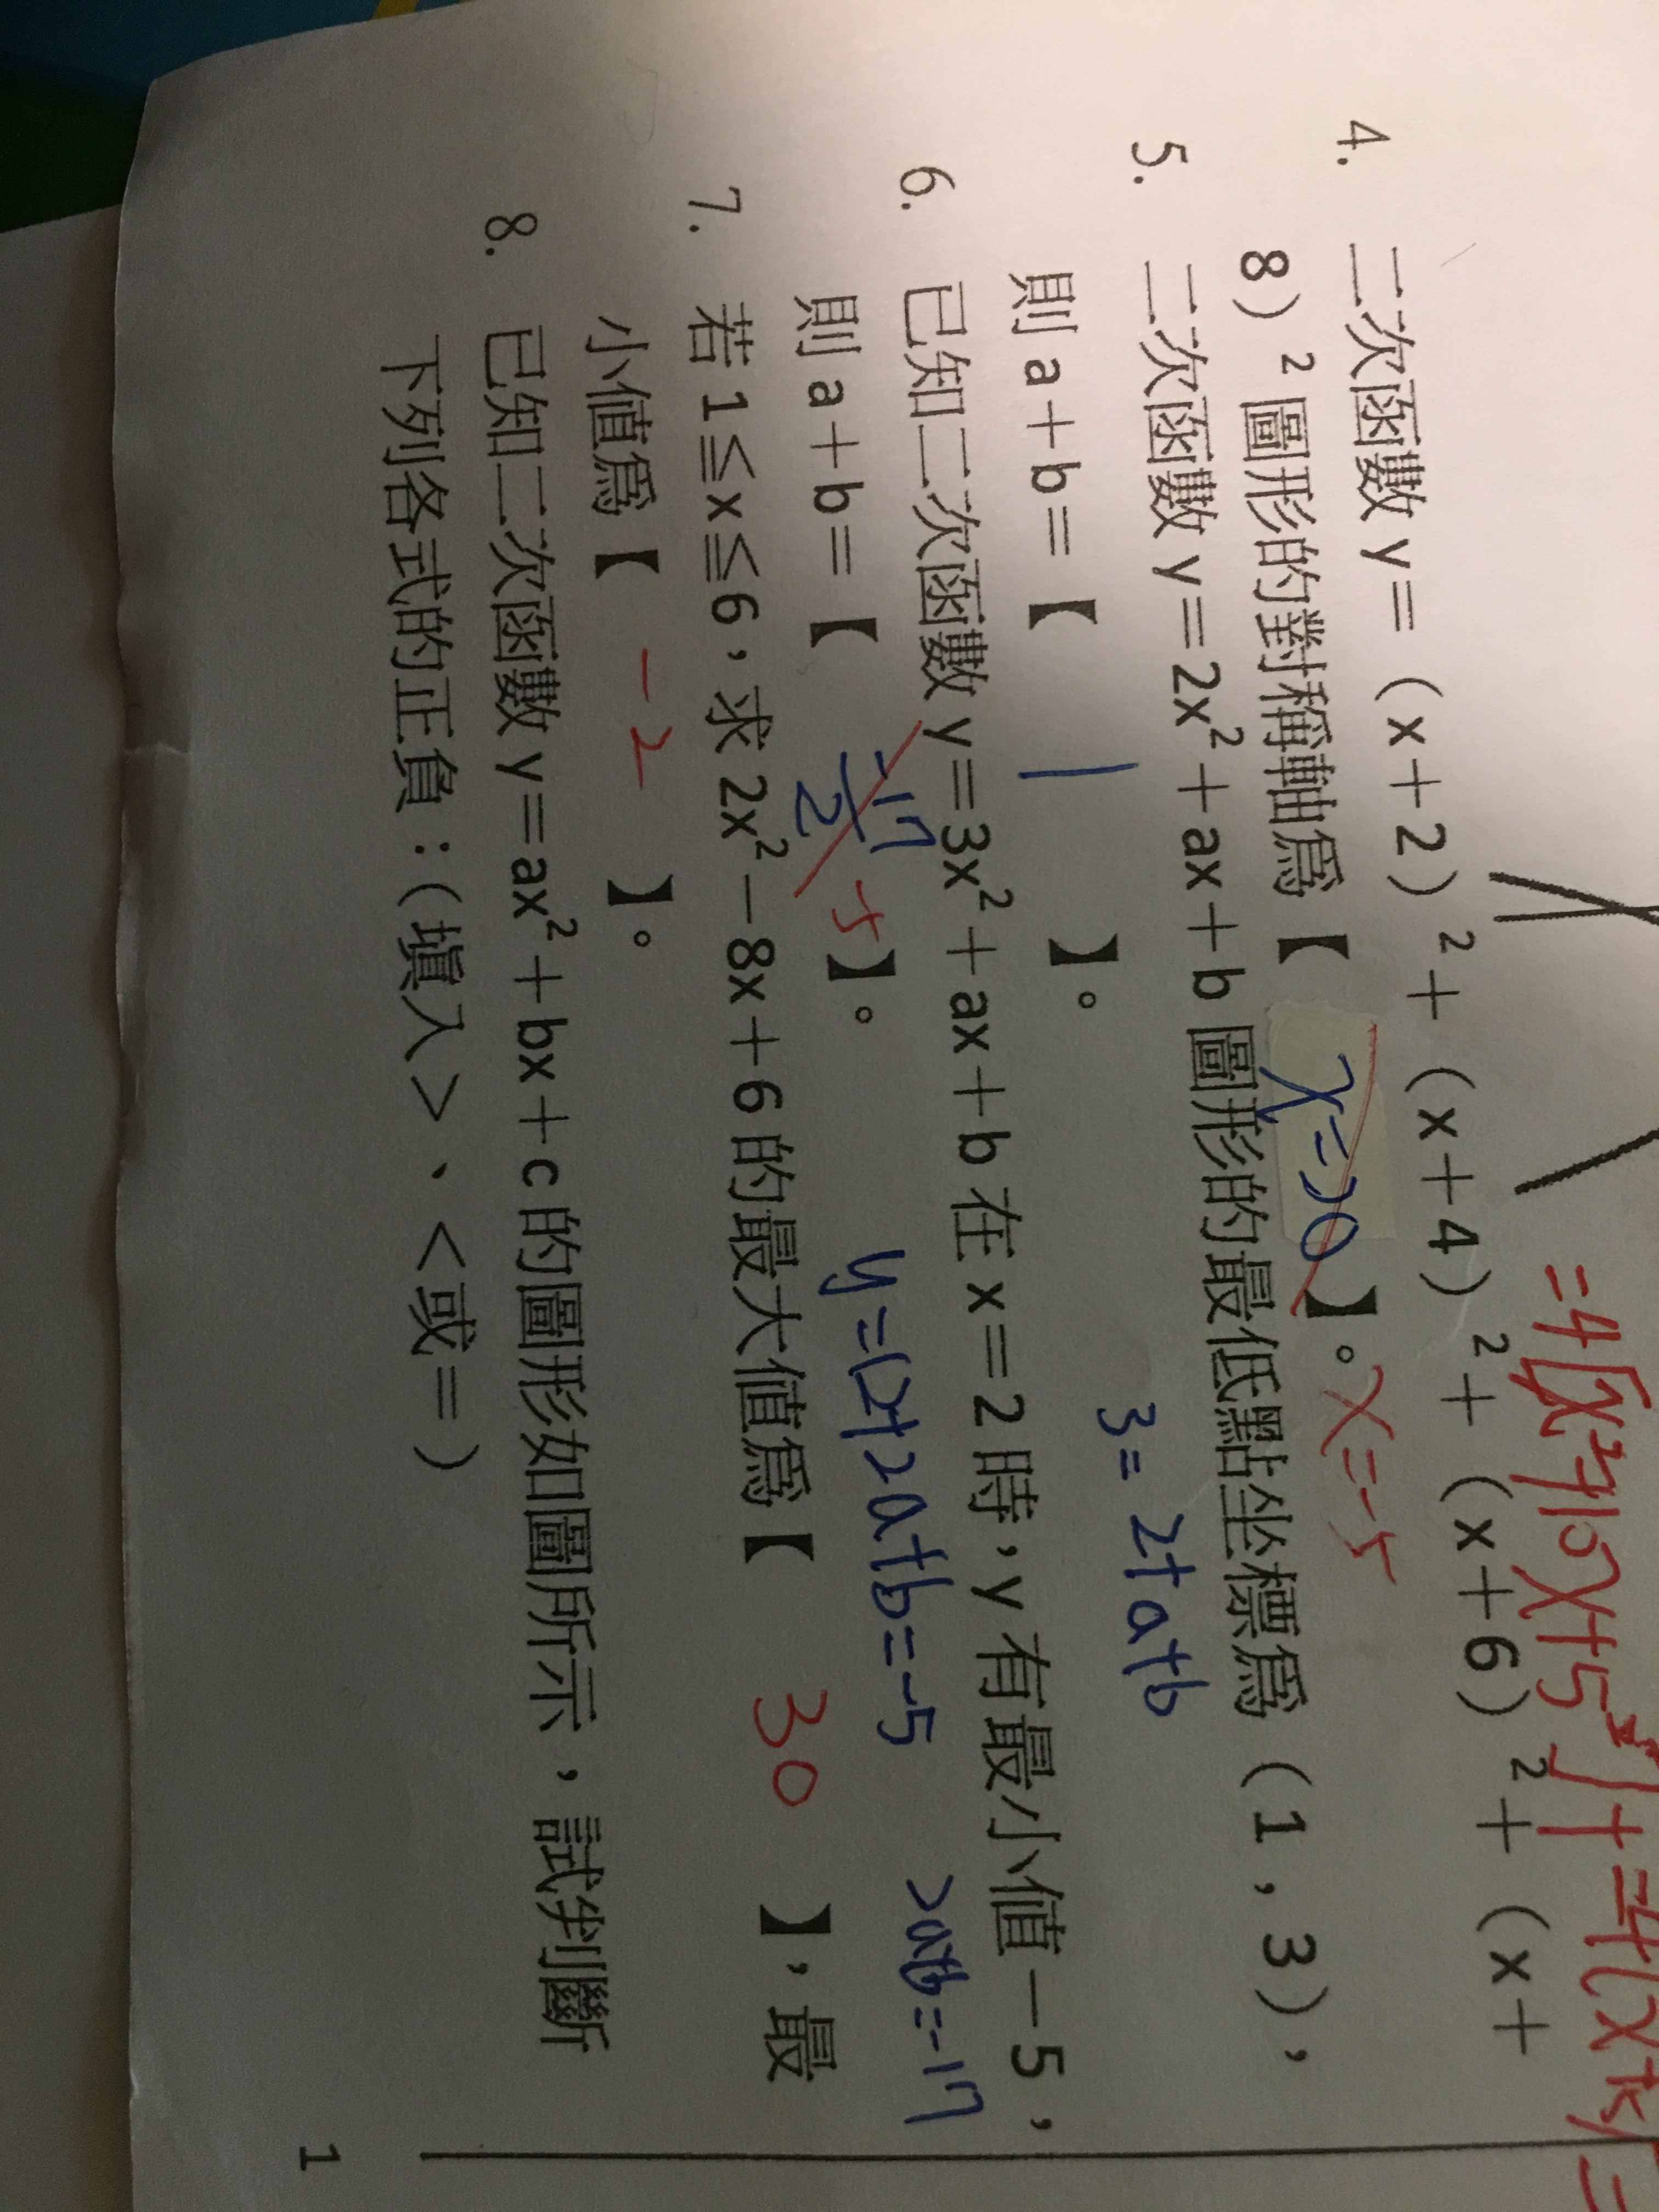 =4[x²+10x+5²]+=4(x+5)=
4. 二次函數 y=(x+2)²+(x+4)²+(x+6)²+(x+
8)²圖形的對稱軸爲【 x=20 】。x=-5
5. 二次函數 y=2x²+ax+b 圖形的最低點坐標爲(1,3),
3=2+a+b
則 a+b=【 1 】。
6. 已知二次函數 y=3x²+ax+b 在 x=2 時,y 有最小值-5,
則 a+b=【 -17/2 -5 】。 y=12+2a+b=-5 2a+b=-17
7. 若 1≦x≦6,求 2x²-8x+6 的最大值爲【 30 】,最
小值爲【 -2 】。
8. 已知二次函數 y=ax²+bx+c 的圖形如圖所示,試判斷
下列各式的正負:(填入>、<或=)
1